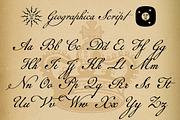 Geographica Script
Aa Bb Cc Dd Ee Ff Gg
Hh Ii Jj Kk Ll Mm
Nn Oo Pp Qq Rr Ss Tt
Uu Vv Ww Xx Yy Zz